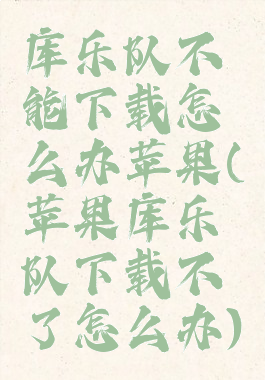 库乐队不
能下载怎
么办苹果(
苹果库乐
队下载不
了怎么办)